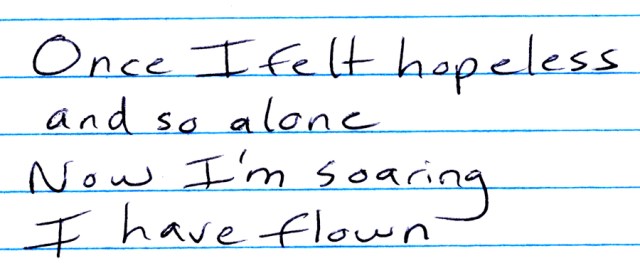 Once I felt hopeless
and so alone
Now I'm soaring
I have flown